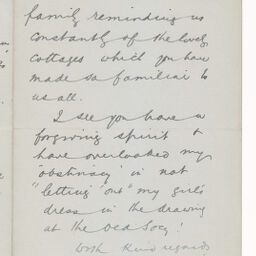 family reminding us
constantly of the lovely
cottages which you have
made so familiar to
us all.
I see you have a
forgiving spirit &
have overlooked my
"obstinacy" in not
"letting out" my girl's
dress in the drawing
at the Old Soc^y!
With Kind regards